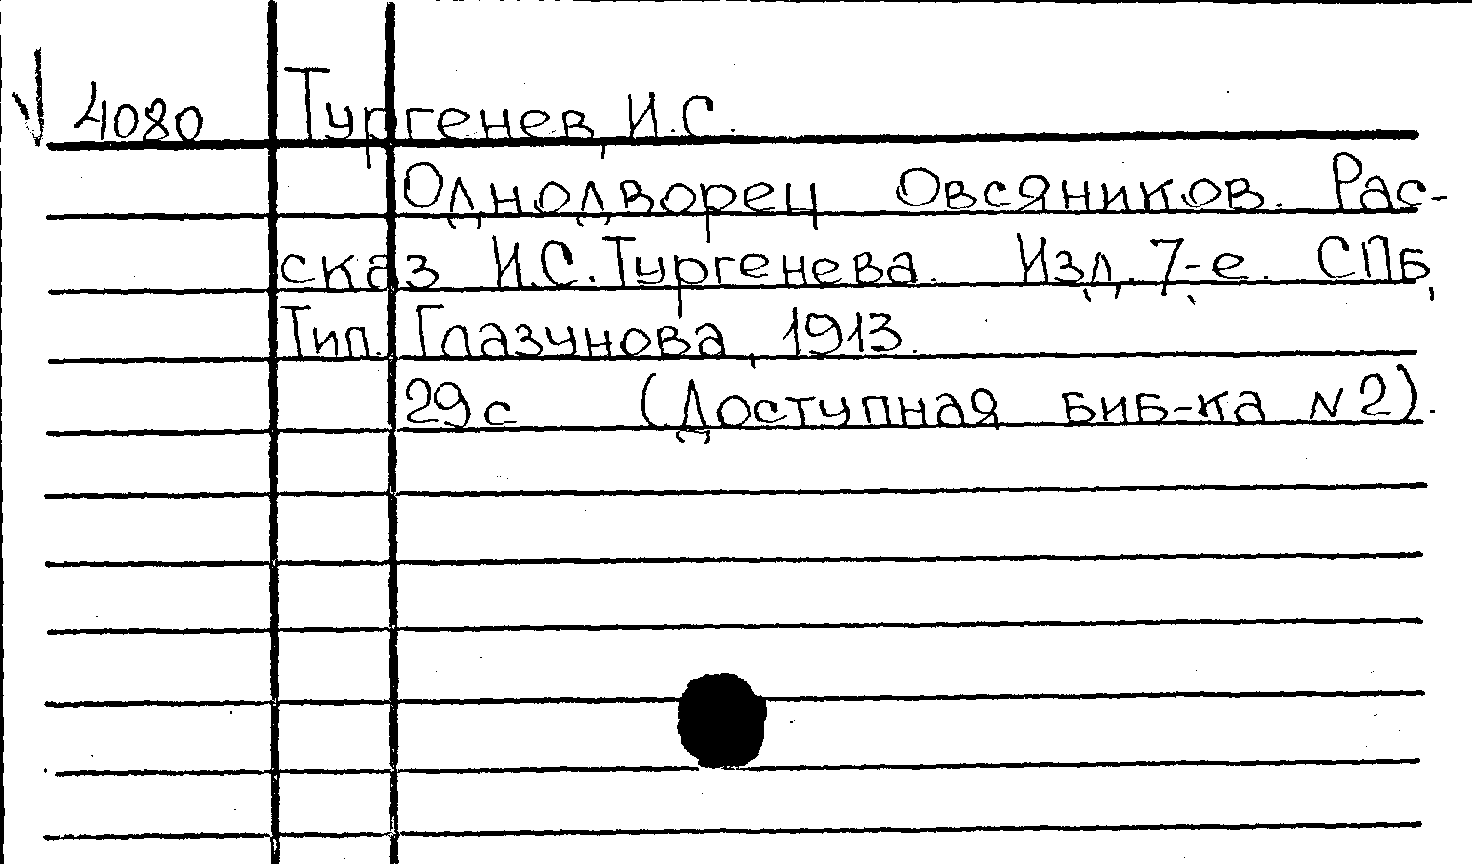 4080 Тургенев, И.С.
Однодворец Овсяников. Рас-
сказ И.С.Тургенева. Изд. 7-е. СПб,
Тип. Глазунова, 1913.
29с (Доступная биб-ка N2).